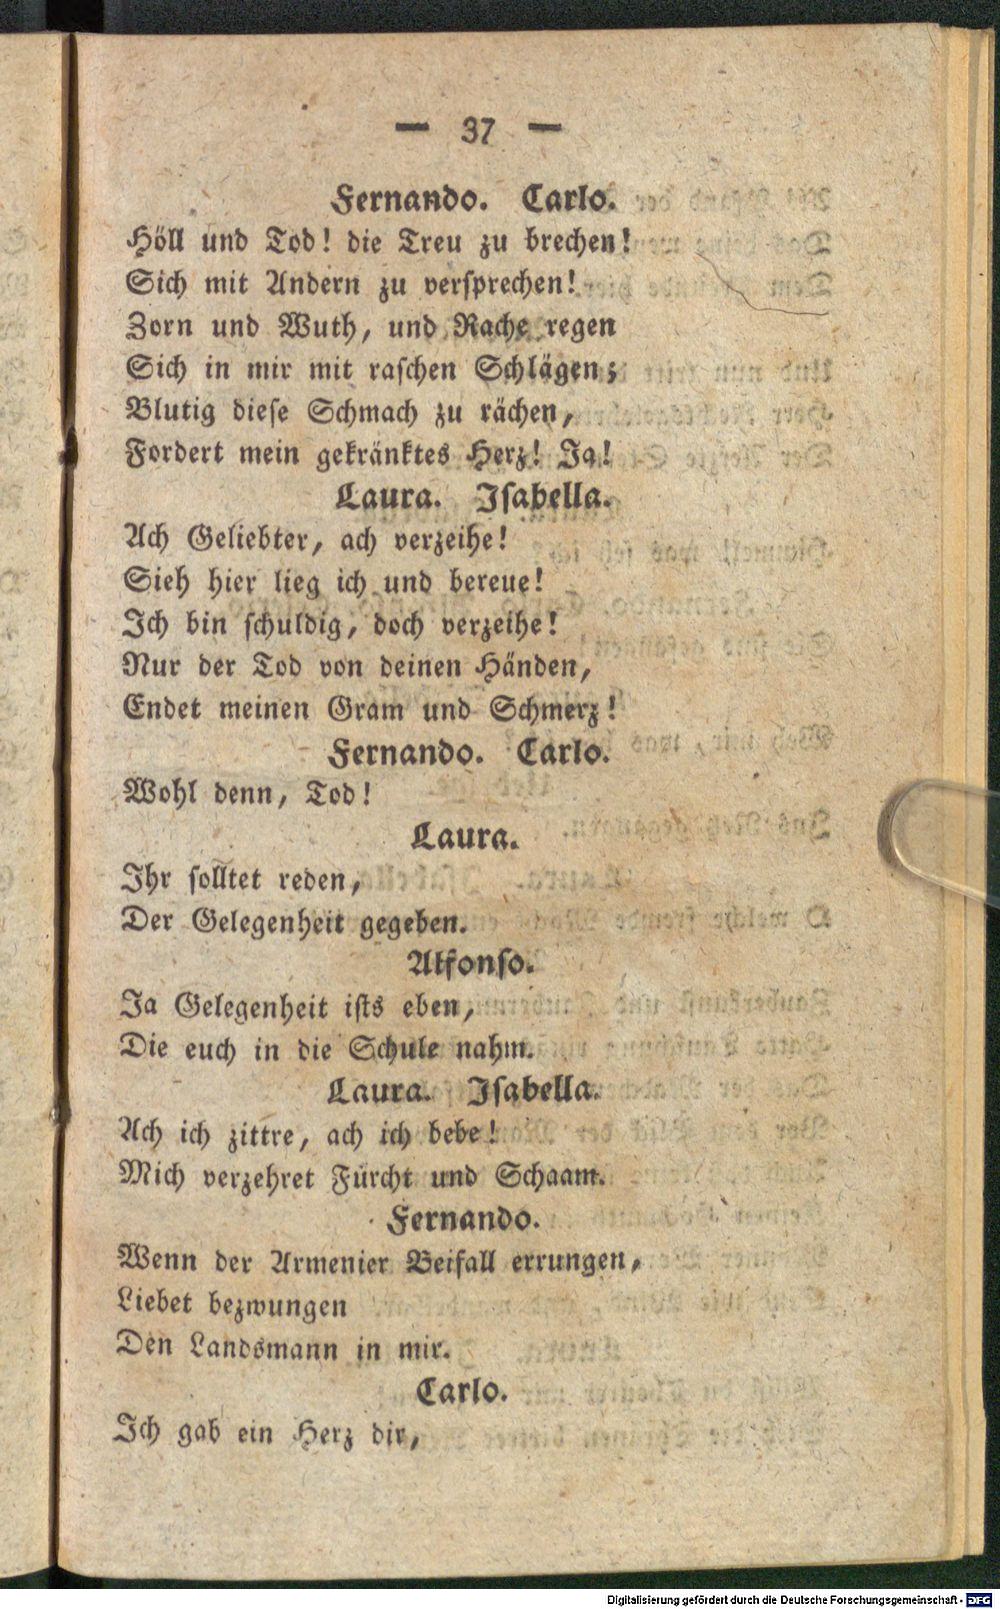 — 37 —
Fernando. Carlo.
Höll und Tod! die Treu zu brechen!
Sich mit Andern zu versprechen!
Zorn und Wuth, und Rache regen
Sich in mir mit raschen Schlägen;
Blutig diese Schmach zu rächen,
Fordert mein gekränktes Herz! Ja!
Laura. Isabella.
Ach Geliebter, ach verzeihe!
Sieh hier lieg ich und bereue!
Ich bin schuldig, doch verzeihe!
Nur der Tod von deinen Händen,
Endet meinen Gram und Schmerz!
Fernando. Carlo.
Wohl denn, Tod!
Laura.
Ihr solltet reden,
Der Gelegenheit gegeben.
Alfonso.
Ja Gelegenheit ists eben,
Die euch in die Schule nahm.
Laura. Isabella.
Ach ich zittre, ach ich bebe!
Mich verzehret Furcht und Schaam.
Fernando.
Wenn der Armenier Beifall errungen,
Liebet bezwungen
Den Landsmann in mir.
Carlo.
Ich gab ein Herz dir,
Digitalisierung gefördert durch die Deutsche Forschungsgemeinschaft - DFG